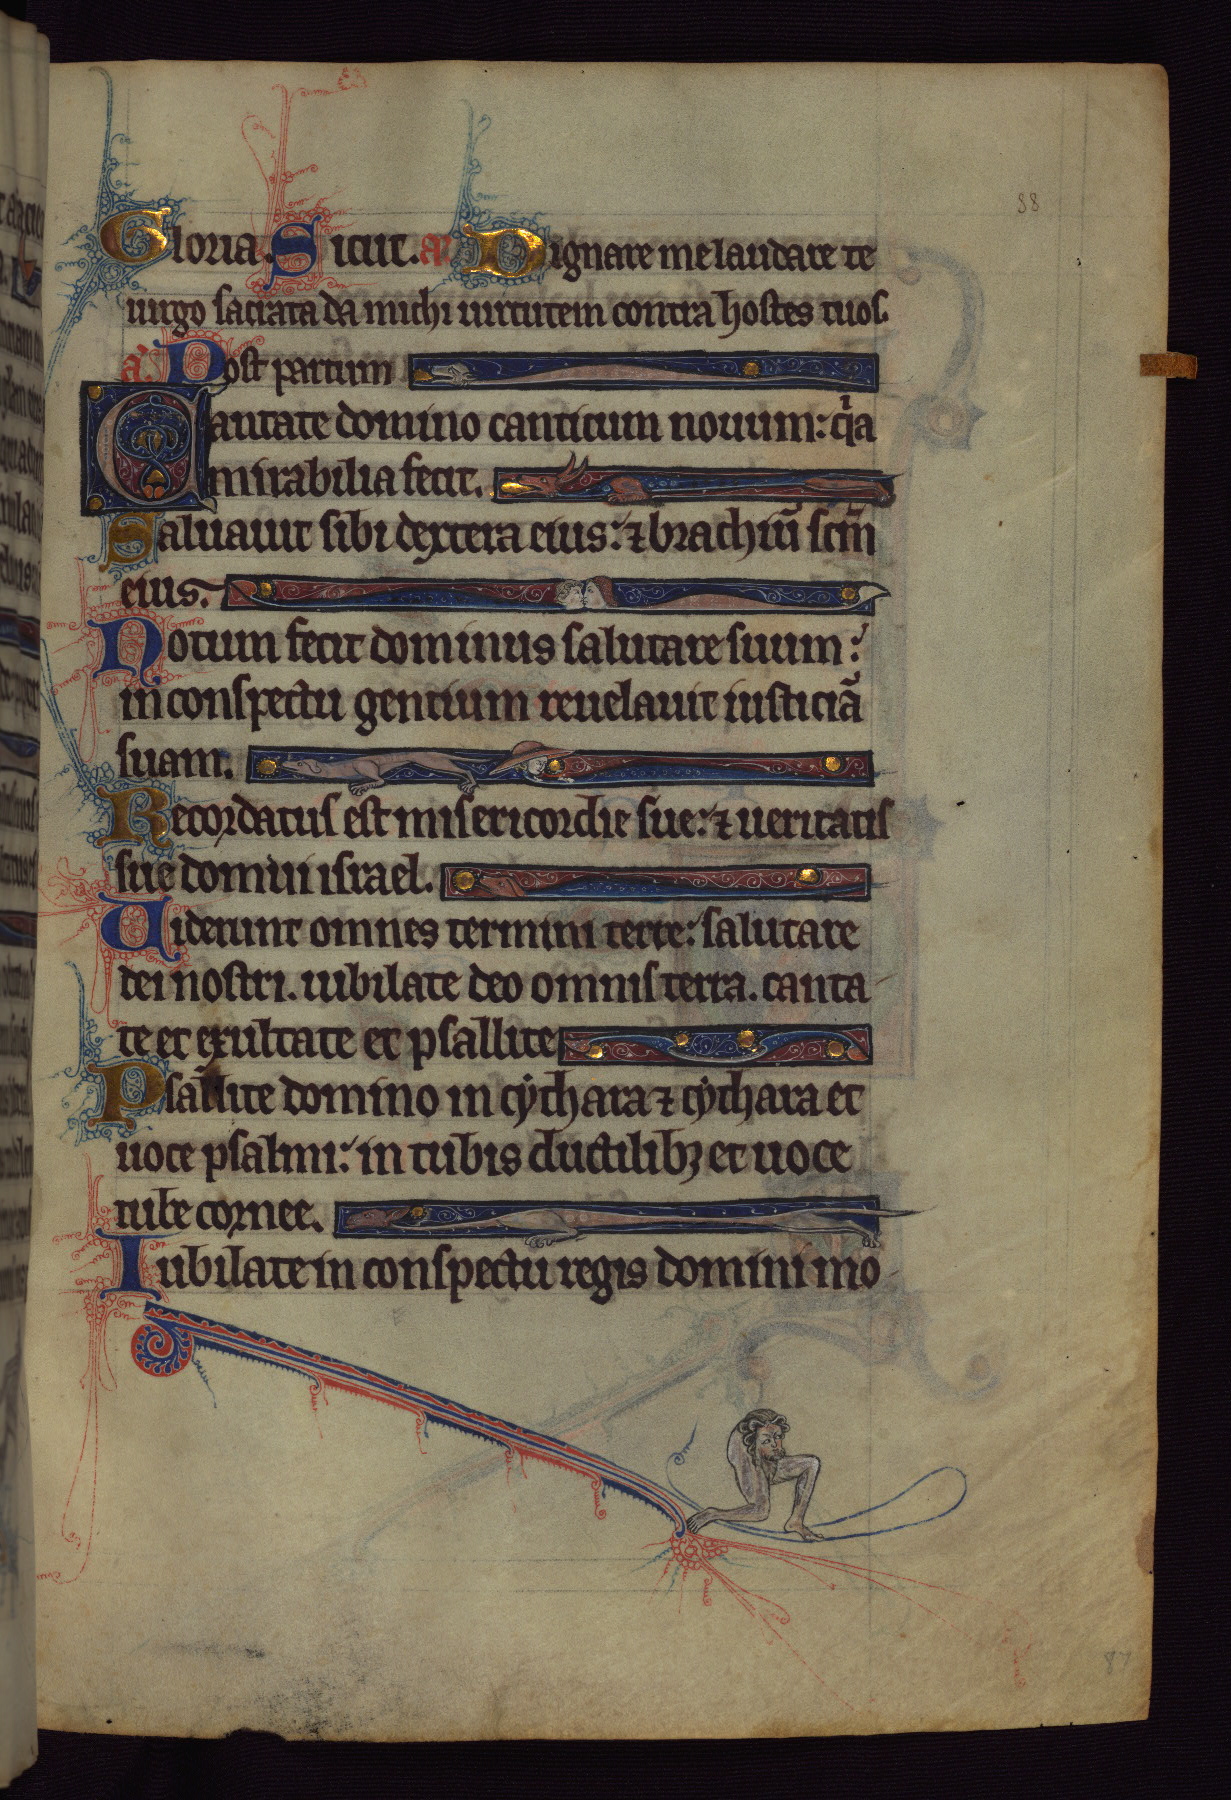 88
Gloria. Sicut. a. Dignare me laudare te
uirgo sacrata da michi uirtutem contra hostes tuos.
a. Post partum
Cantate domino canticum nouum: qia
mirabilia fecit.
Saluauit sibi dextera eius: ⁊ brachiū scm̄
eius.
Notum fecit dominus salutare suum:
in conspectu gentium reuelauit iusticiā
suam.
Recordatus est misericordie sue: ⁊ ueritatis
sue domui israel.
Uiderunt omnes termini terre: salutare
dei nostri. iubilate deo omnis terra. canta
te et exultate et psallite
Psallite domino in cythara ⁊ cythara et
uoce psalmi: in tubis ductilibꝫ et uoce
tube cornee.
Iubilate in conspectu regis domini mo
87